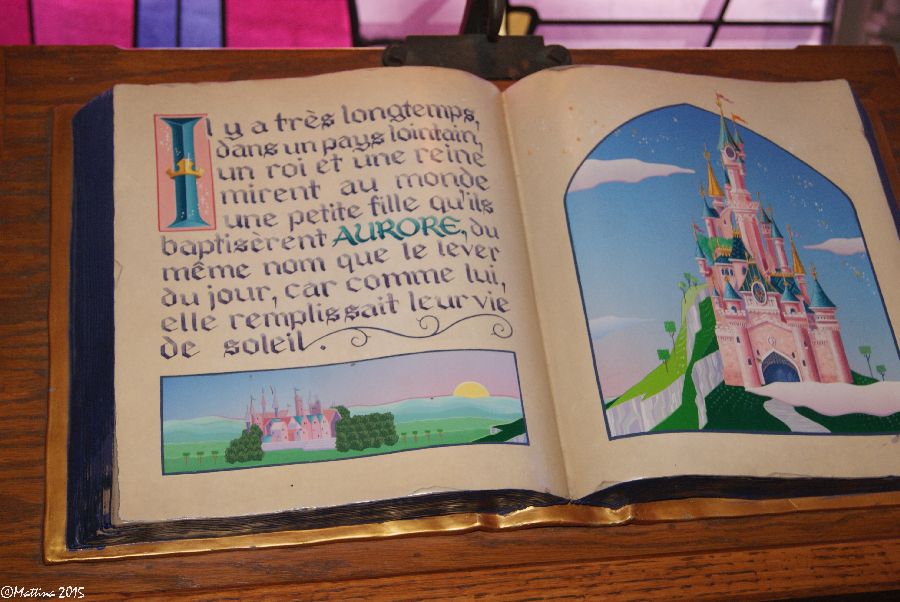 Il y a très longtemps,
dans un pays lointain,
un roi et une reine
mirent au monde
une petite fille qu'ils
baptisèrent AURORE, du
même nom que le lever
du jour, car comme lui,
elle remplissait leur vie
de soleil.
©Mattina 2015